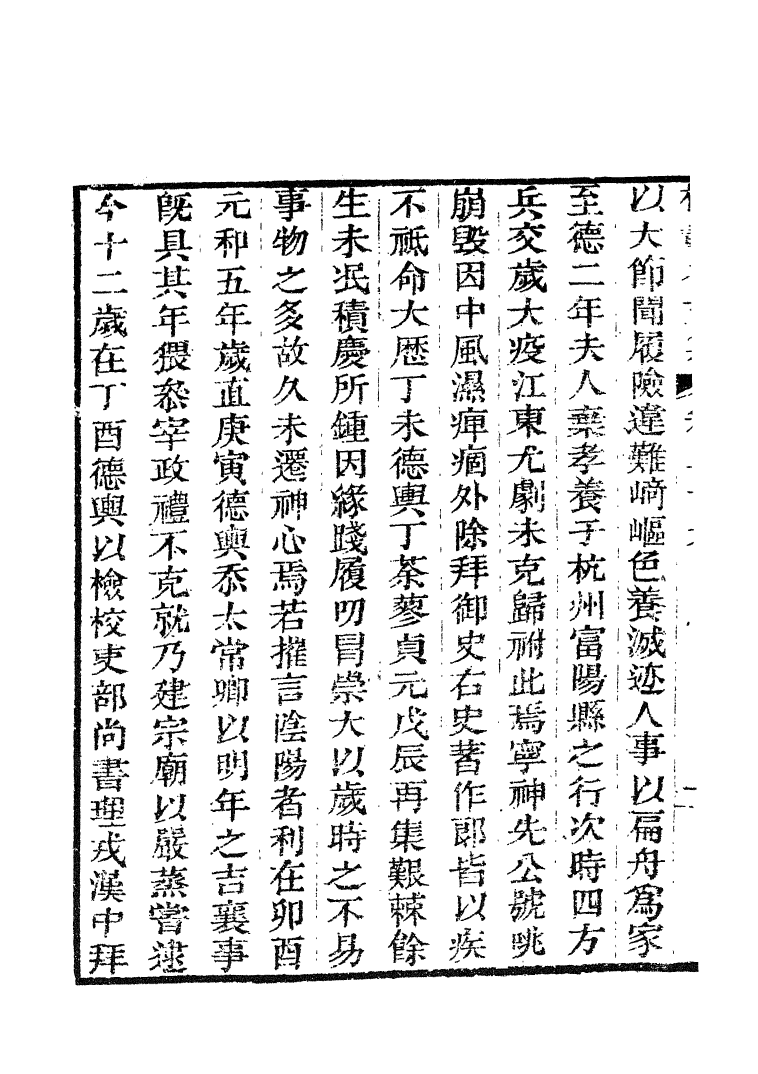 以大節聞履險違難崎嶇色養滅迹人事以扁舟爲家
至德二年夫人棄孝養于杭州富陽縣之行次時四方
兵交歲大疫江東尤劇未克歸祔此焉寧神先公號眺
崩毀因中風濕痺痼外除拜御史右史著作郎皆以疾
不祗命大歷丁未德輿丁荼蓼貞元戊辰再集艱棘餘
生未泯積慶所鍾因緣踐履叨冒崇大以歲時之不易
事物之多故久未遷神心焉若摧言陰陽者利在卯酉
元和五年歲直庚寅德輿忝太常卿以明年之吉襄事
旣具其年猥忝宰政禮不克就乃建宗廟以嚴蒸嘗逮
今十二歲在丁酉德輿以檢校吏部尚書理戎漢中拜